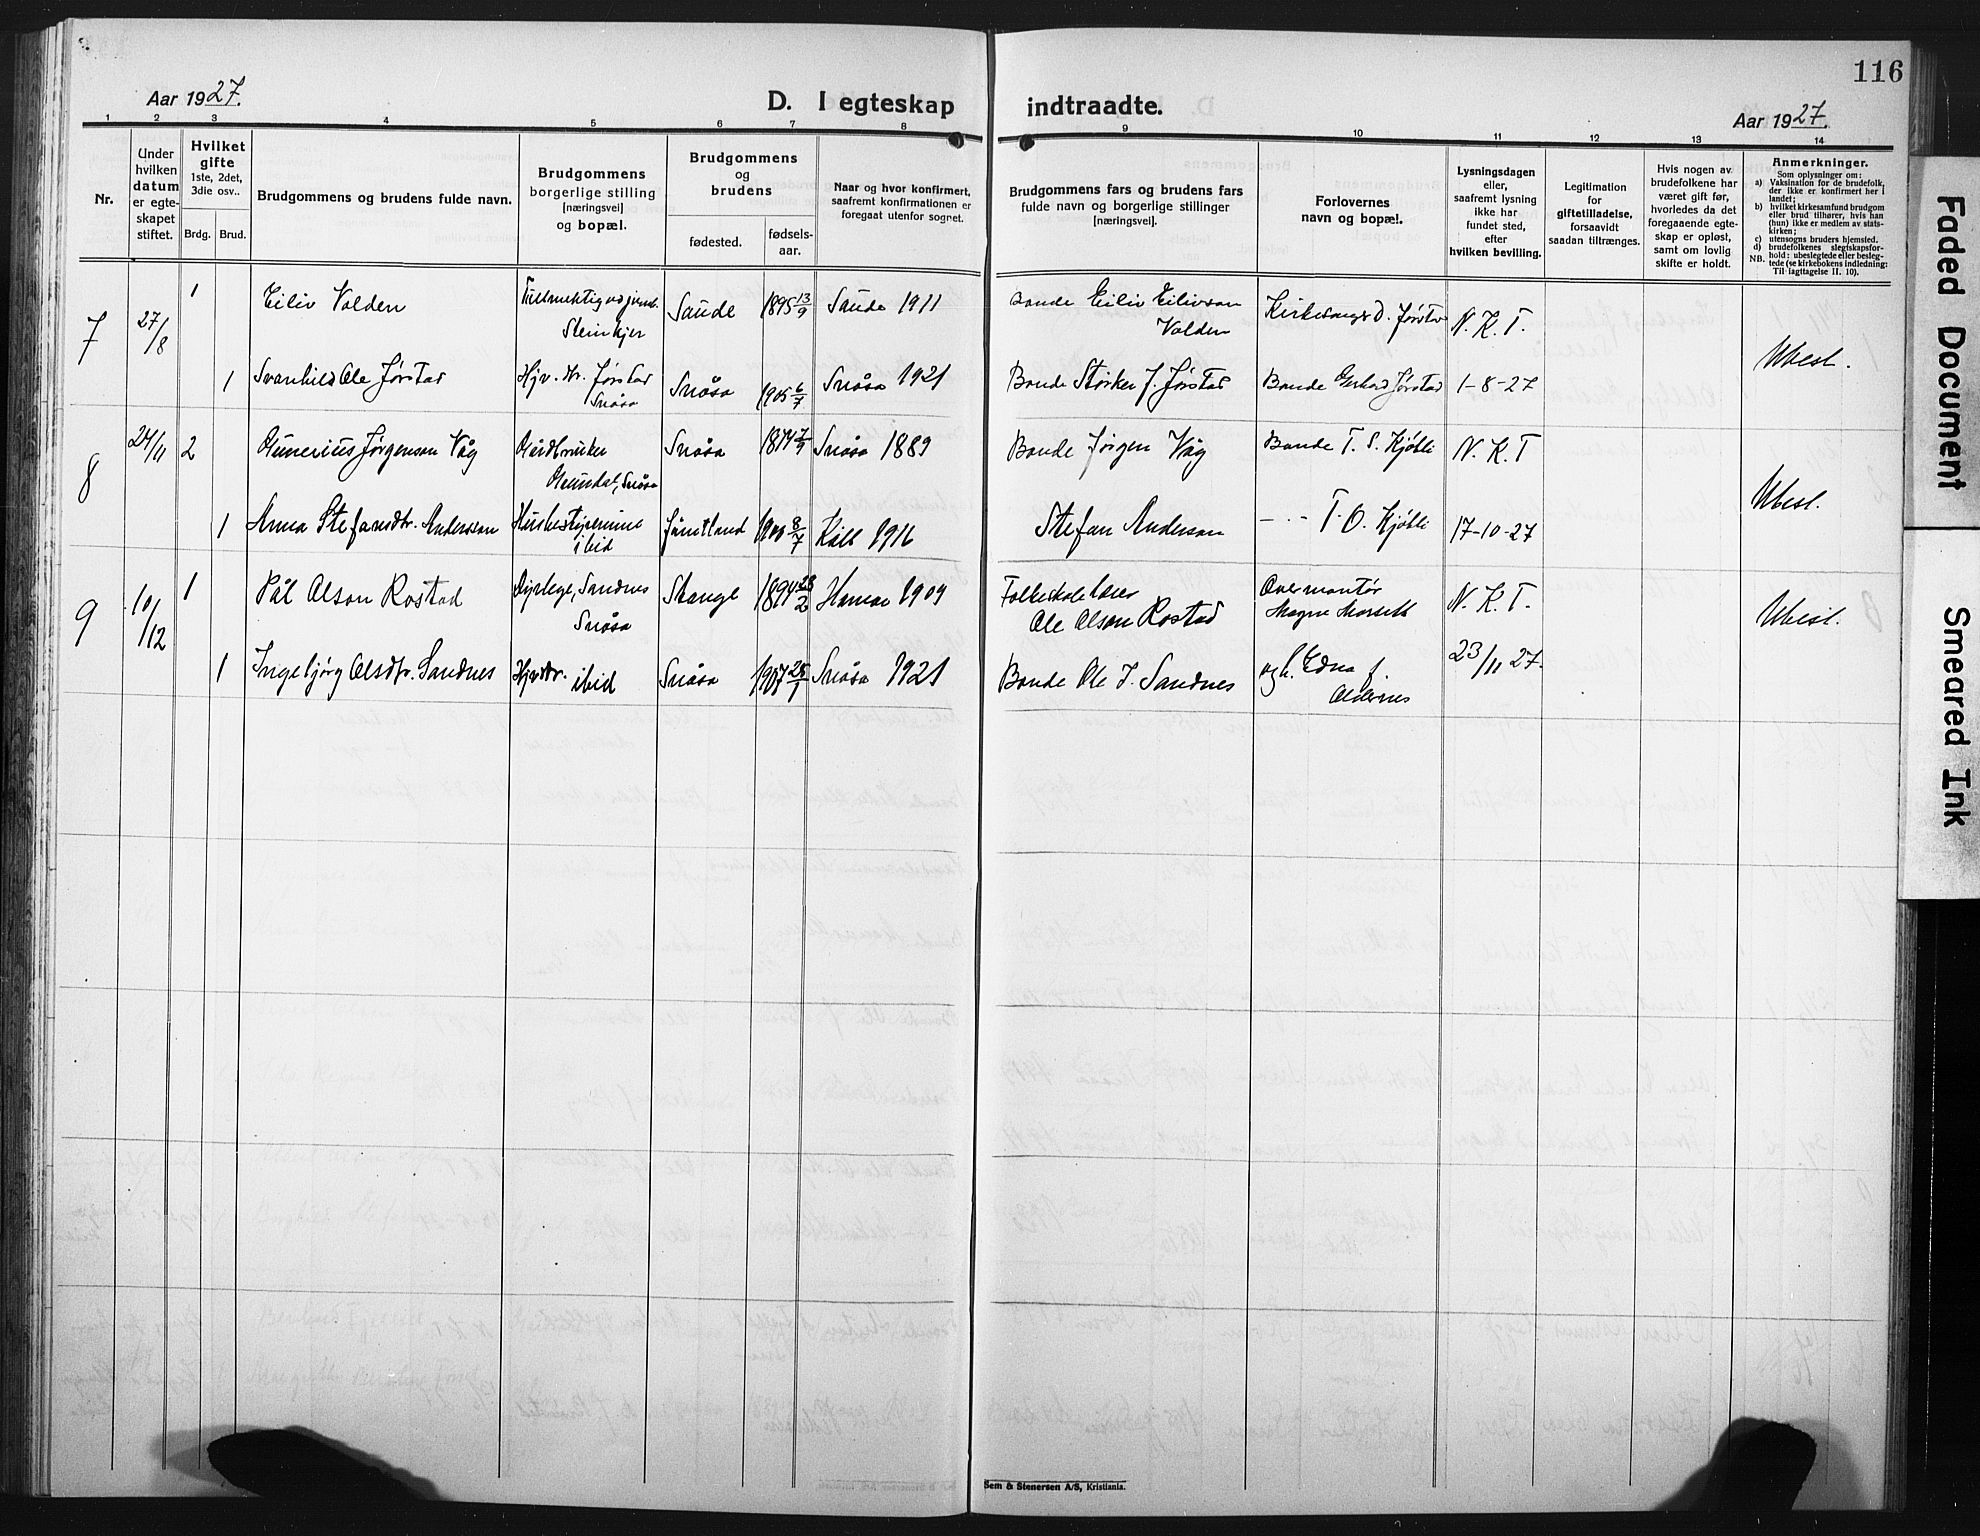 116
Aar 1927.
D. I egteskap indtraadte.
Aar 1927.
1 2 3 4 5 6 7 8 9 10 11 12 13 14
Nr.
Under
hvilken
datum
er egte-
skapet
stiftet.
Hvilket
gifte
1ste, 2det,
3die osv..
Brdg. Brud.
Brudgommens og brudens fulde navn.
Brudgommens
borgerlige stilling
[næringsvei]
og bopæl.
Brudgommens
og
brudens
fødested.
fødsels-
aar.
Naar og hvor konfirmert,
saafremt konfirmationen er
foregaat utenfor sognet.
Brudgommens fars og brudens fars
fulde navn og borgerlige stillinger
[næringsvei].
Forlovernes
navn og bopæl.
Lysningsdagen
eller,
saafremt lysning
ikke har
fundet sted,
efter
hvilken bevilling.
Legitimation
for
giftetilladelse,
forsaavidt
saadan tiltrænges.
Hvis nogen av
brudefolkene har
været gift før,
hvorledes da det
foregaaende egte-
skap er opløst,
samt om lovlig
skifte er holdt.
Anmerkninger.
Som oplysninger om:
a) Vaksination for de brudefolk,
der ikke er konfirmert her i
landet;
b) hvilket kirkesamfund brudgom
eller brud tilhører, hvis han
(hun) ikke er medlem av stats-
kirken;
c) utensogns bruders hjemsted.
d) brudefolkenes slegtskapsfor-
hold: ubeslegtede eller besleg-
NB. tede (se kirkebokens indledning:
Til iagttagelse II. 10).
7 27/8 1 Eiliv Valden
Steinkjer
Saude 1895 13/9 Saude 1911
Bonde Eiliv Eilivson
Valden
Kirkesanger O. Jørstad
N. K. T.
1 Svanhild Ole Jørstad
Hjv. dtr. Jørstad
Snåsa
Snåsa 1905 6/7 Snåsa 1921
Bonde Størker J. Jørstad
Bonde Gerhard Jørstad
1-8-27
Ubesl.
8 24/11 2 Gunerius Jørgenson Våg
Gårdbruker
Grøndal, Snåsa
Snåsa 1874 7/9 Snåsa 1889
Bonde Jørgen Våg
Bonde T. S. Kjøbli
N. K. T
1 Anna Stefansdtr. Anderson
Husbestyrerinne
ibid
Jämtland 8/7 Kall 1916
Stefan Anderson
-.- T. O. Kjøbli
17-10-27
Ubesl.
9 10/12 1 Pål Olson Rostad
Dyrlege, Sandnes
Snåsa
Stange 1894 28/2 Hamar 1909
Folkeskolelærer
Ole Olson Rostad
Overmontør
Magne Morsett
N. K. T.
1 Ingebjørg Olsdtr. Sandnes
Hjv.dtr. ibid
Snåsa 1907 25/1 Snåsa 1921
Bonde Ole I. Sandnes
og h. Edna f.
23/11 27.
Ubesl.
Sem & Stenersen A/S, Kristiania.
Faded Document
Smeared Ink